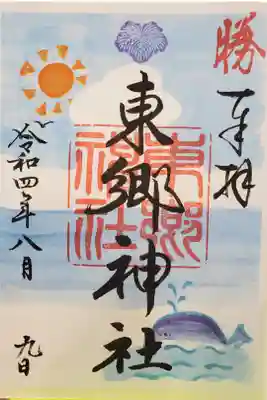 勝
奉拝
東郷神社
東郷神社
令和四年八月
九日